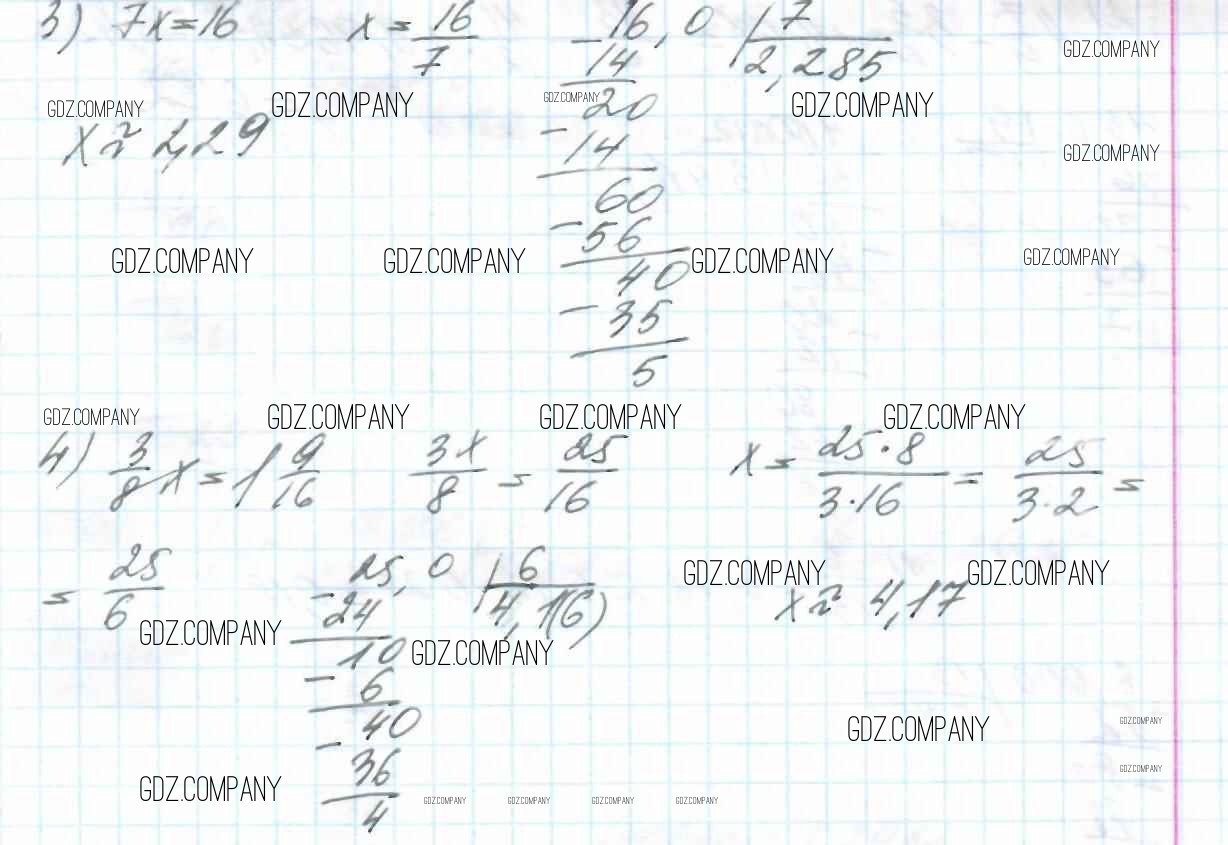 3) 7x=16 x=16/7 16,0 | 7
-14 2,285
GDZ.COMPANY
GDZ.COMPANY GDZ.COMPANY GDZ.COMPANY 20 GDZ.COMPANY
x≈2,29 -14 GDZ.COMPANY
60
-56
GDZ.COMPANY GDZ.COMPANY GDZ.COMPANY GDZ.COMPANY
40
-35
5
GDZ.COMPANY GDZ.COMPANY GDZ.COMPANY GDZ.COMPANY
4) 3/8 x=1 9/16 3x/8 = 25/16 x= 25·8/3·16 = 25/3·2 =
= 25/6 25,0 | 6 GDZ.COMPANY GDZ.COMPANY
-24 4,1(6) x≈4,17
GDZ.COMPANY 10 GDZ.COMPANY
-6
40 GDZ.COMPANY GDZ.COMPANY
-36 GDZ.COMPANY
GDZ.COMPANY 4 GDZ.COMPANY GDZ.COMPANY GDZ.COMPANY GDZ.COMPANY